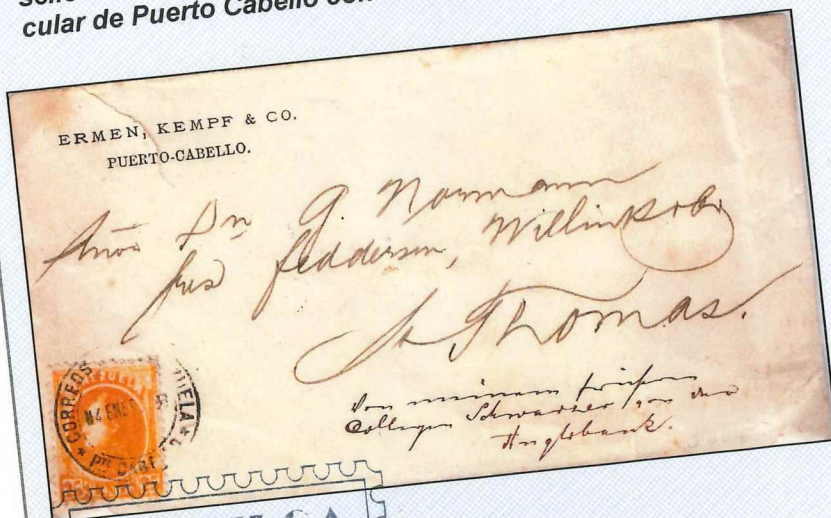 cular de Puerto Cabello
ERMEN, KEMPF & CO.
PUERTO-CABELLO.
Dn G Normann
feddersen, Willink & Co
St Thomas.
Von meinem früheren
Collegen Schwarzer von der
Anglobank.
CORREOS
VENEZUELA
ENE